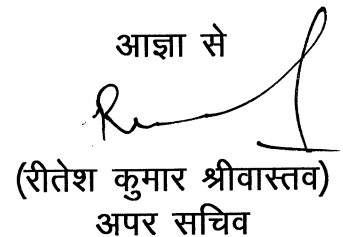 आज्ञा से
(रीतेश कुमार श्रीवास्तव)
अपर सचिव